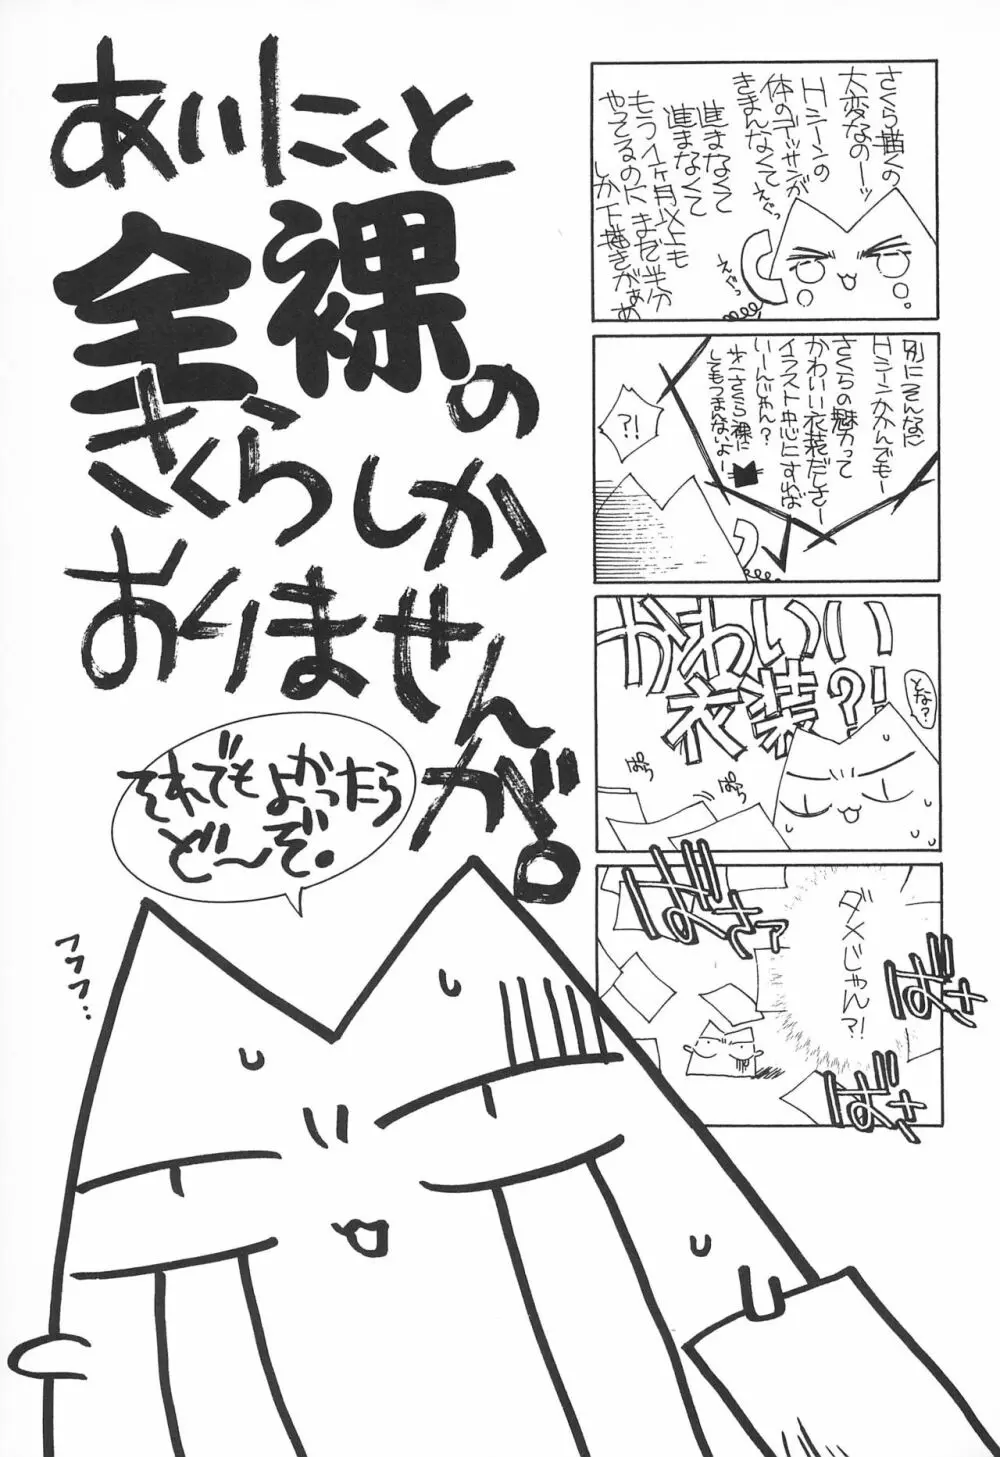 さくら描くの
大変なのーッ
Hシーンの
体のデッサンが
きまんなくて
進まなくて
進まなくて
もう1ヶ月以上も
やってるのにまだ半分
しか下描きがぁぁ
えぐっ
えぐっ
別にそんなに
Hシーンかかんでもー
さくらの魅力って
かわいい衣装ださー
イラスト中心にすれば
いーんじゃん?
さくら裸に
してもつまんないよー
?!
かわいい
衣装?!
どな?
ぱらっ
ぱらっ
ダメじゃん?!
ばさっ
ばさ
ばさ
あいにくと
全裸の
さくらしか
おりませんが。
それでもよかったら
ど〜ぞ。
フフフ..